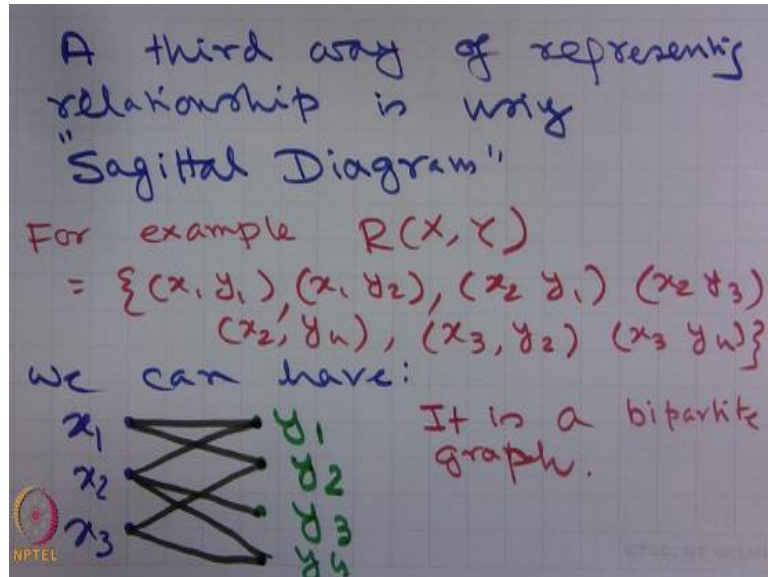 A third way of representing
relationship is using
"Sagittal Diagram"
For example R(X, Y)
= {(x1 y1), (x1 y2), (x2 y1) (x2 y3)
(x2, y4), (x3, y2) (x3 y4)}
We can have:
x1 y1
x2 y2
x3 y3
y4
It is a bipartite
graph.
NPTEL